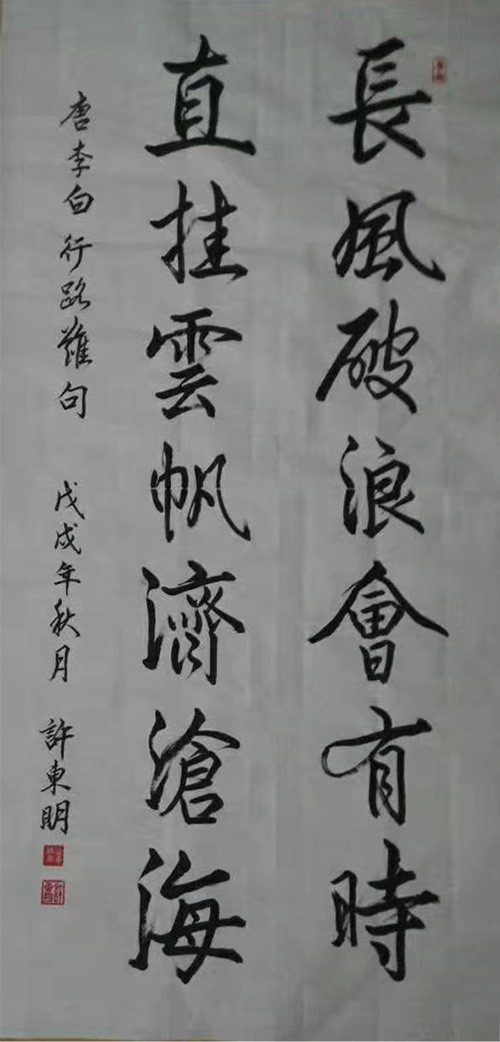 長風破浪會有時
直挂雲帆濟滄海
唐李白行路難句 戊戌年秋月 許東明